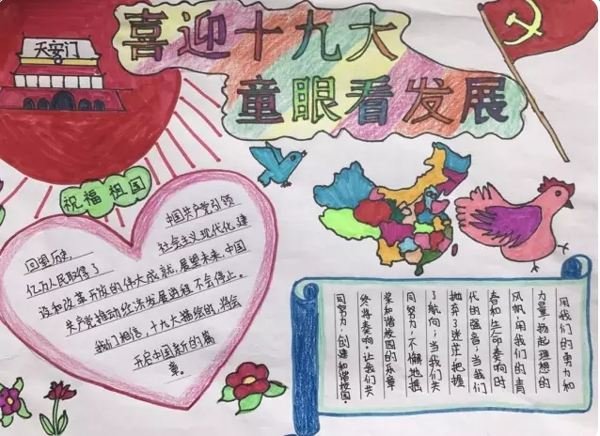 天安门
喜迎十九大
童眼看发展
祝福祖国
回望历史,中国共产党引领
亿为人民取得了社会主义现代化建
设和改革开放的伟大成就,展望未来,中国
共产党推动经济发展进程不会停止。
我们相信,十九大描绘的,将会
开启中国新的篇
章。
用我们的勇力和
力量,扬起理想的
风帆,用我们的青
春和生命奏响时
代的强音;当我们
抛弃了迷茫,把握
了航向;当我们共
同努力,不懈地
桨和谐校园的乐章
终将奏响。让我们共
同努力,创建和谐校园。